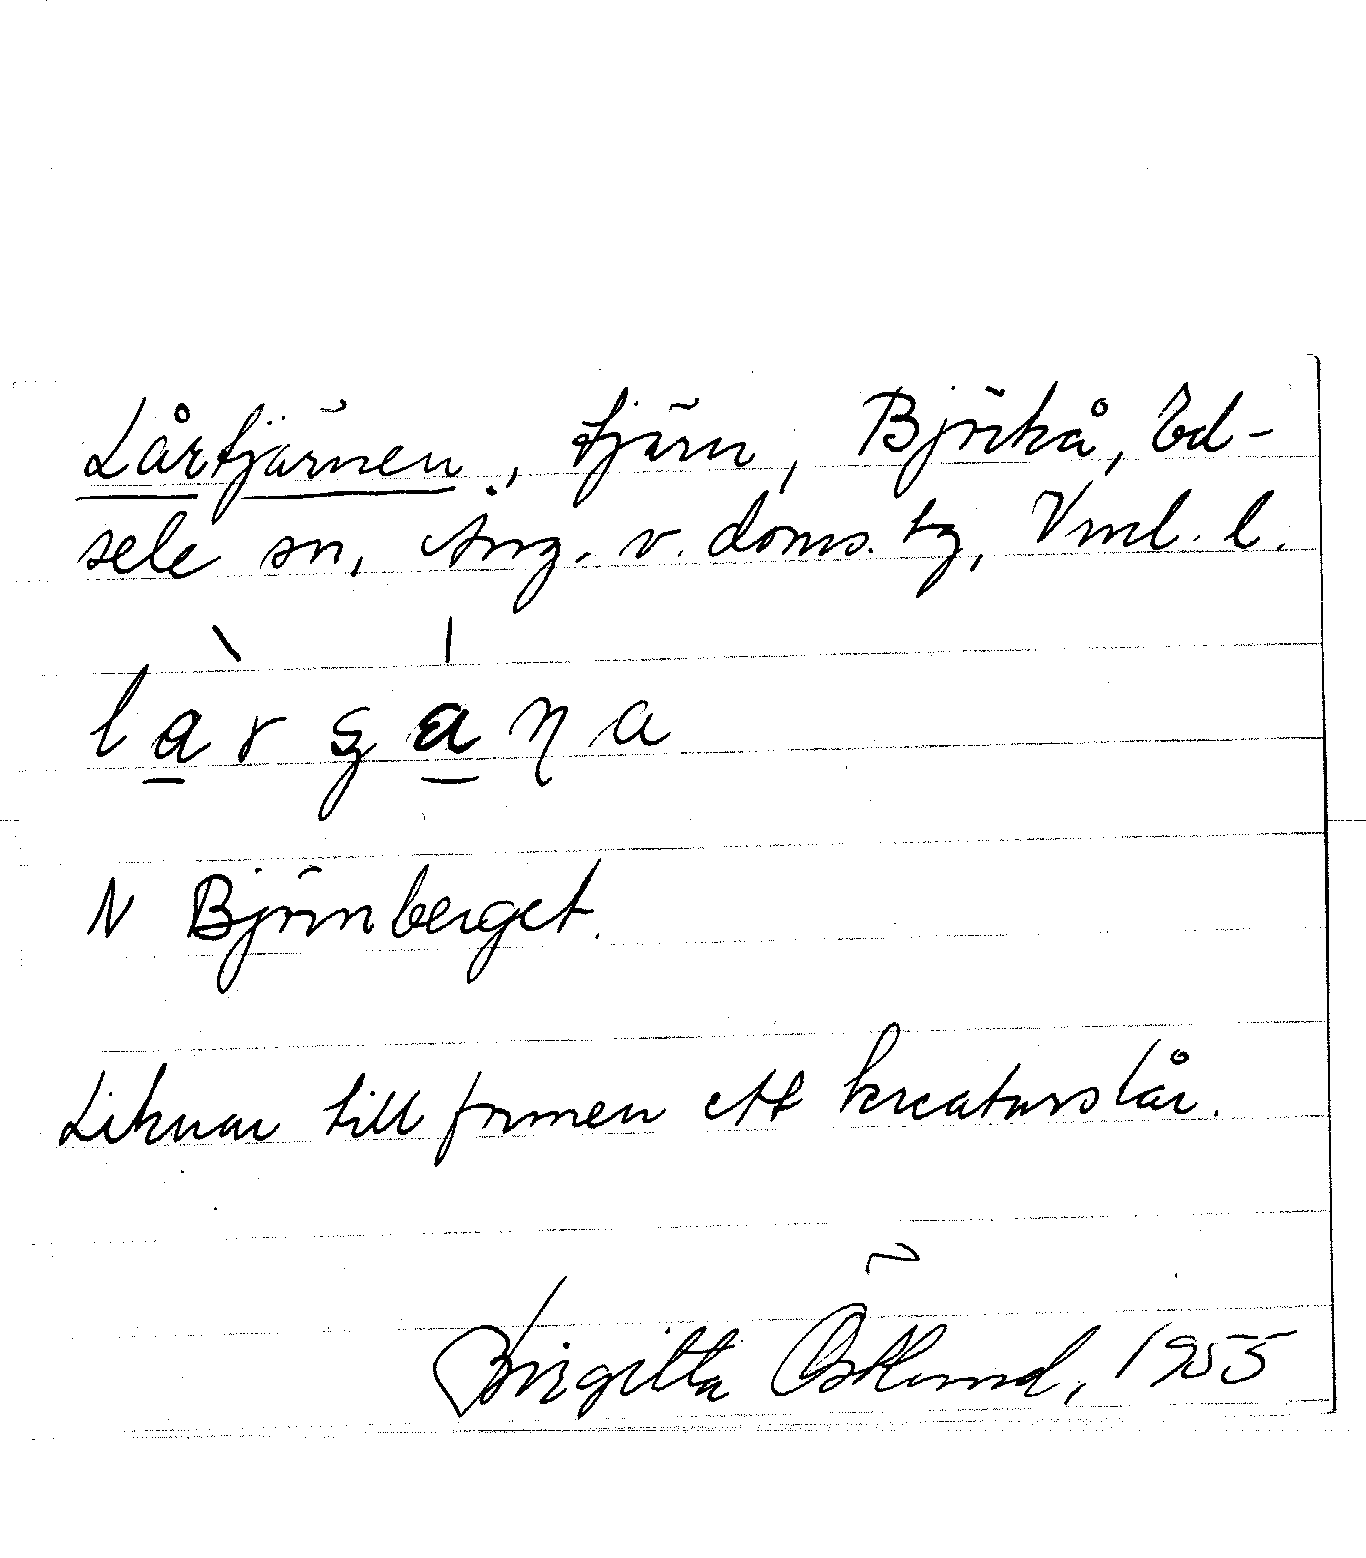 Lårtjärnen, tjärn, Björkå, Ed-
sele sn, Ång. v. doms. tg, Vml. l.
N Björnberget.
Liknar till formen ett kreaturslår.
Birgitta Östlund, 1955